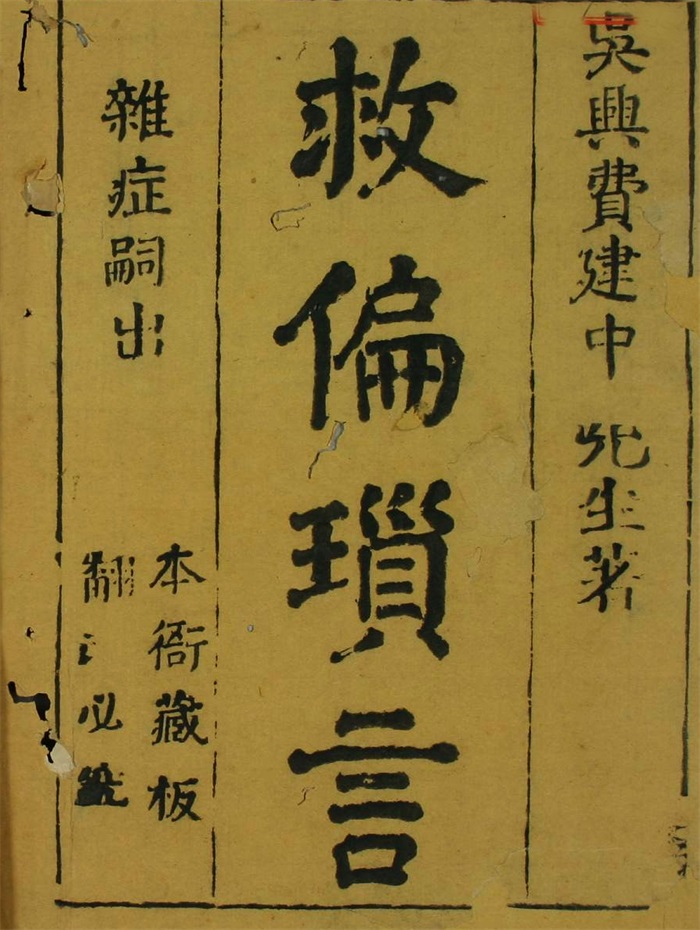 吳興費建中先生著
救偏瑣言
雜症嗣出
本衙藏板
翻 必